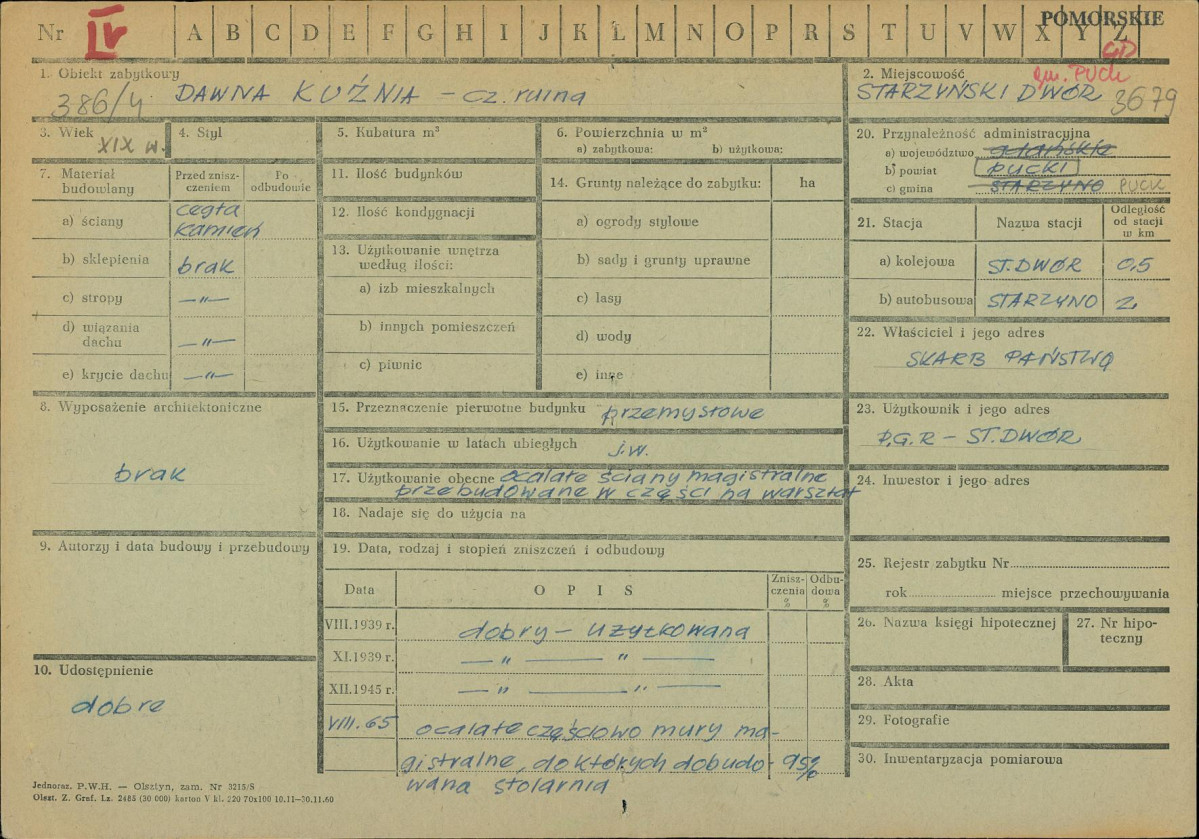 Nr IV A B C D E F G H I J K L M N O P R S T U V W X Y Z
POMORSKIE
GD
gm. PUCK
1. Obiekt zabytkowy
386/4 DAWNA KUŹNIA – cz. ruina
2. Miejscowość
STARZYŃSKI DWÓR 3679
3. Wiek
XIX w.
4. Styl
5. Kubatura m³
6. Powierzchnia w m²
a) zabytkowa: b) użytkowa:
20. Przynależność administracyjna
a) województwo gdańskie
b) powiat PUCKI
c) gmina STARZYNO PUCK
7. Materiał budowlany
Przed zniszczeniem
Po odbudowie
a) ściany cegła kamień
b) sklepienia brak
c) stropy —"—
d) wiązania dachu —"—
e) krycie dachu —"—
11. Ilość budynków
12. Ilość kondygnacji
13. Użytkowanie wnętrza według ilości:
a) izb mieszkalnych
b) innych pomieszczeń
c) piwnic
14. Grunty należące do zabytku: ha
a) ogrody stylowe
b) sady i grunty uprawne
c) lasy
d) wody
e) inne
21. Stacja Nazwa stacji Odległość od stacji w km
a) kolejowa ST. DWÓR 0,5
b) autobusowa STARZYNO 2,
22. Właściciel i jego adres
SKARB PAŃSTWA
8. Wyposażenie architektoniczne
brak
15. Przeznaczenie pierwotne budynku przemysłowe
16. Użytkowanie w latach ubiegłych j.w.
17. Użytkowanie obecne ocalałe ściany magistralne
przebudowane w części na warsztat
18. Nadaje się do użycia na
23. Użytkownik i jego adres
P.G.R – ST. DWÓR
24. Inwestor i jego adres
9. Autorzy i data budowy i przebudowy
19. Data, rodzaj i stopień zniszczeń i odbudowy
Data OPIS Zniszczenia % Odbudowa %
VIII.1939 r. dobry – użytkowana
XI.1939 r. — " —— " ——
XII.1945 r. — " —— " ——
VIII.65 ocalałe częściowo mury ma-
gistralne, do których dobudo- 95%
wana stolarnia
25. Rejestr zabytku Nr
rok miejsce przechowywania
26. Nazwa księgi hipotecznej
27. Nr hipoteczny
28. Akta
29. Fotografie
30. Inwentaryzacja pomiarowa
10. Udostępnienie
dobre
Jednoraz. P.W.H. — Olsztyn, zam. Nr 3215/S
Olszt. Z. Graf. Lz. 2485 (30 000) karton V kl. 220 70x100 10.11—30.11.60